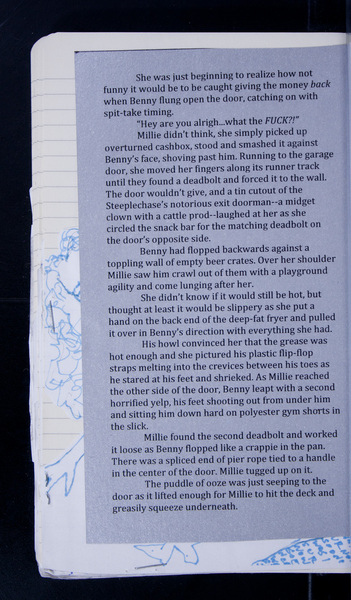 She was just beginning to realize how not
funny it would be to be caught giving the money back
when Benny flung open the door, catching on with
spit-take timing.
"Hey are you alrigh...what the FUCK?!"
Millie didn't think, she simply picked up
overturned cashbox, stood and smashed it against
Benny's face, shoving past him. Running to the garage
door, she moved her fingers along its runner track
until they found a deadbolt and forced it to the wall.
The door wouldn't give, and a tin cutout of the
Steeplechase's notorious exit doorman--a midget
clown with a cattle prod--laughed at her as she
circled the snack bar for the matching deadbolt on
the door's opposite side.
Benny had flopped backwards against a
toppling wall of empty beer crates. Over her shoulder
Millie saw him crawl out of them with a playground
agility and come lunging after her.
She didn't know if it would still be hot, but
thought at least it would be slippery as she put a
hand on the back end of the deep-fat fryer and pulled
it over in Benny's direction with everything she had.
His howl convinced her that the grease was
hot enough and she pictured his plastic flip-flop
straps melting into the crevices between his toes as
he stared at his feet and shrieked. As Millie reached
the other side of the door, Benny leapt with a second
horrified yelp, his feet shooting out from under him
and sitting him down hard on polyester gym shorts in
the slick.
Millie found the second deadbolt and worked
it loose as Benny flopped like a crappie in the pan.
There was a spliced end of pier rope tied to a handle
in the center of the door. Millie tugged up on it.
The puddle of ooze was just seeping to the
door as it lifted enough for Millie to hit the deck and
greasily squeeze underneath.